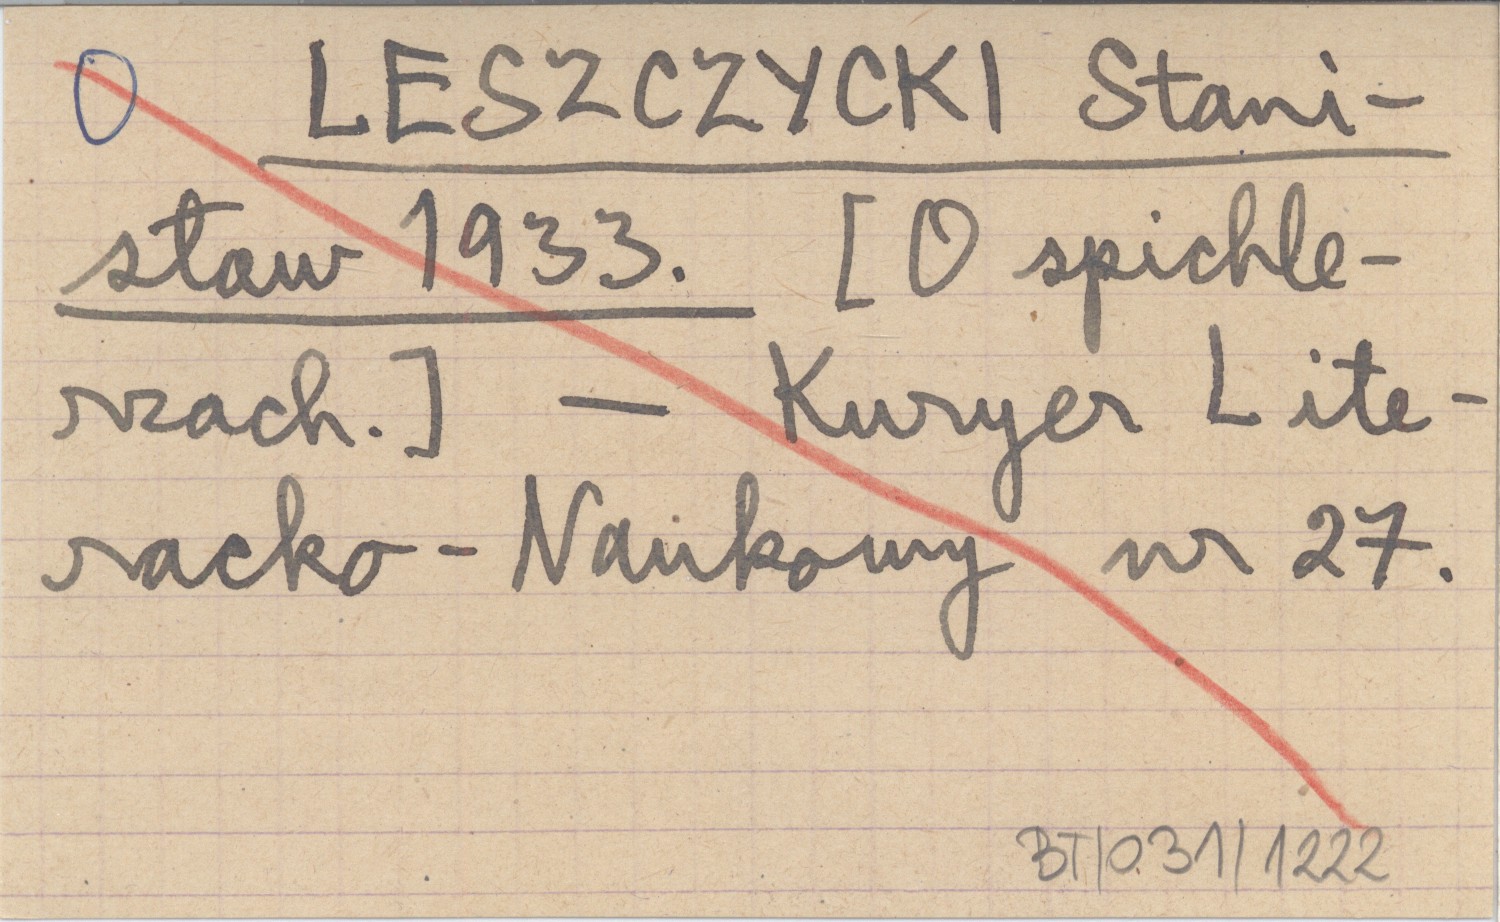 O LESZCZYCKI Stani-
sław 1933. [O spichle-
rzach.] — Kuryer Lite-
racko-Naukowy nr 27.
BT/031/1222